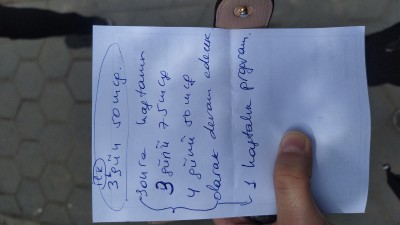 ilk
3 gün 50 mcg.
sonra haftanın
3 günü 75 mcg
4 günü 50 mcg
olarak devam edecek
1 haftalık program.